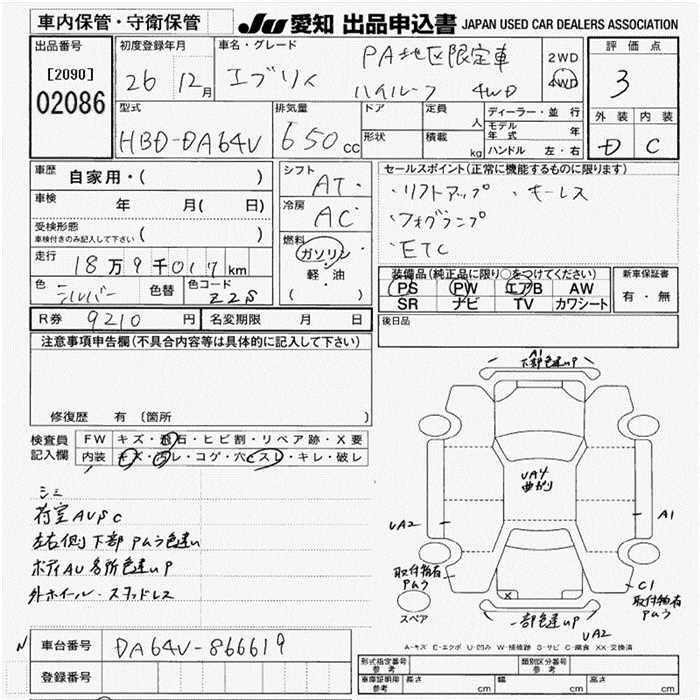 車内保管・守衛保管
JU 愛知 出品申込書 JAPAN USED CAR DEALERS ASSOCIATION
出品番号
[2090]
02086
初度登録年月
26 12月
車名・グレード
エブリィ PA地区限定車
ハイルーフ 4WD
2WD
4WD
評価点
3
外装 内装
D C
型式
HBD-DA64V
排気量
650cc
ドア
形状
定員 人
積載 kg
ディーラー・並行
モデル年式 年
ハンドル 左・右
車歴 自家用・( )
車検 年 月( 日)
受検形態
車検付きのみ記入して下さい ( )
走行 18万9千017km
色 シルバー 色替 色コード Z2S
シフト
AT
冷房
AC
燃料
ガソリン
軽・油
( )
セールスポイント(正常に機能するものに限ります)
・リフトアップ ・キーレス
・フォグランプ
・ETC
装備品(純正品に限り○をつけてください)
PS PW エアB AW
SR ナビ TV カワシート
新車保証書
有・無
R券 9210円 名変期限 月 日
後日品
注意事項申告欄(不具合内容等は具体的に記入して下さい)
修復歴 有 〔箇所 〕
検査員
記入欄
FW キズ・飛石・ヒビ割・リペア跡・X要
内装 キズ・汚レ・コゲ・穴・スレ・キレ・破レ
シミ
荷室AUPC
左右側下部PMう色違い
ボディAU各所色違いP
外ホイール・スタッドレス
A1
下部色違いP
UA4
曲がり
UA2
A1
取付物有
PMう
スペア
C1
取付物有
PMう
一部色違いP
UA2
A・キズ E・エクボ U・凹み W・補修跡 S・サビ C・腐食 XX・交換済
車台番号 DA64V-866619
登録番号
形式指定番号
参考
類別区分番号
参考
車庫証明用
参考
長さ cm
幅 cm
高さ cm